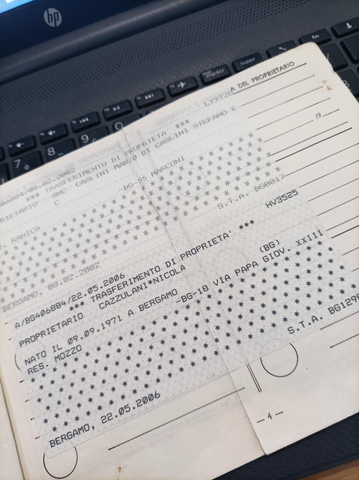 hp
DEL PROPRIETARIO
*** TRASFERIMENTO DI PROPRIETA' ***
SNC GASLINI MARIO DI GASLINI STEFANO E
19
-BG-55 MARCONI
BERGAMO, 08.02.2002
S.T.A. BG8017
A/BG406884/22.05.2006 HV3525
*** TRASFERIMENTO DI PROPRIETA' ***
PROPRIETARIO CAZZULANI*NICOLA
NATO IL 09.09.1971 A BERGAMO (BG)
RES. MOZZO -BG-18 VIA PAPA GIOV. XXIII
BERGAMO, 22.05.2006
S.T.A. BG129
— 4 —